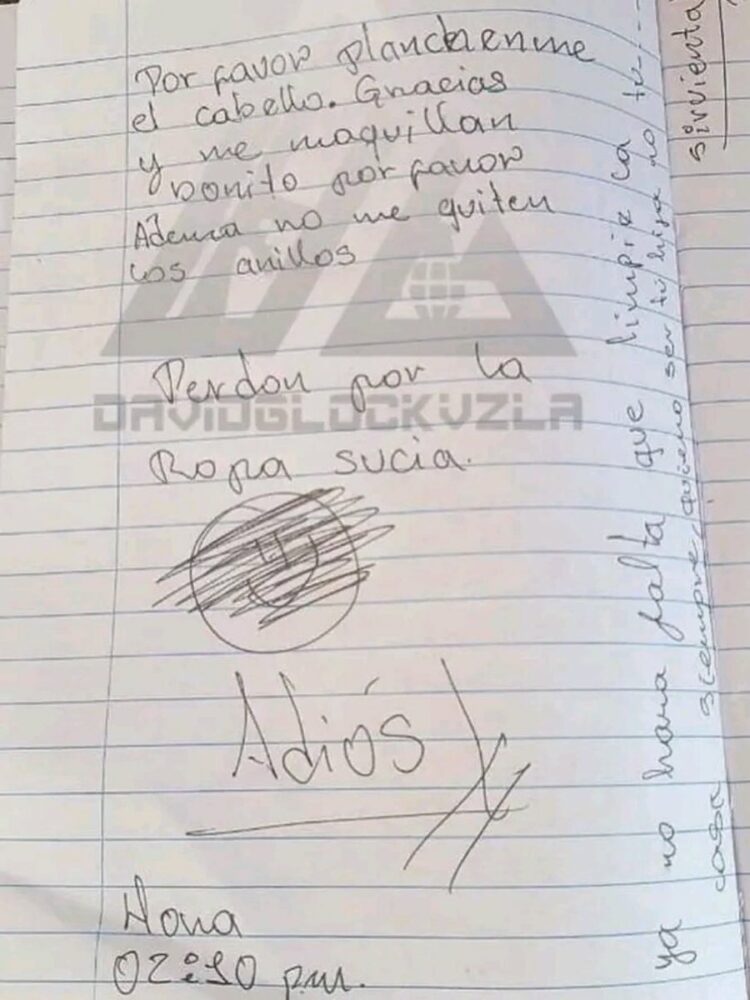 Por favor planchenme
el cabello. Gracias
y me maquillan
bonito por favor
Adema no me quiten
los anillos
Perdon por la
Ropa sucia.
Adiós
Hora
02:10 pm.
ya no hara falta que limpie la
casa siempre, quieno ser tú hija no tu....
sirvienta
DAVIDGLOCKVZLA